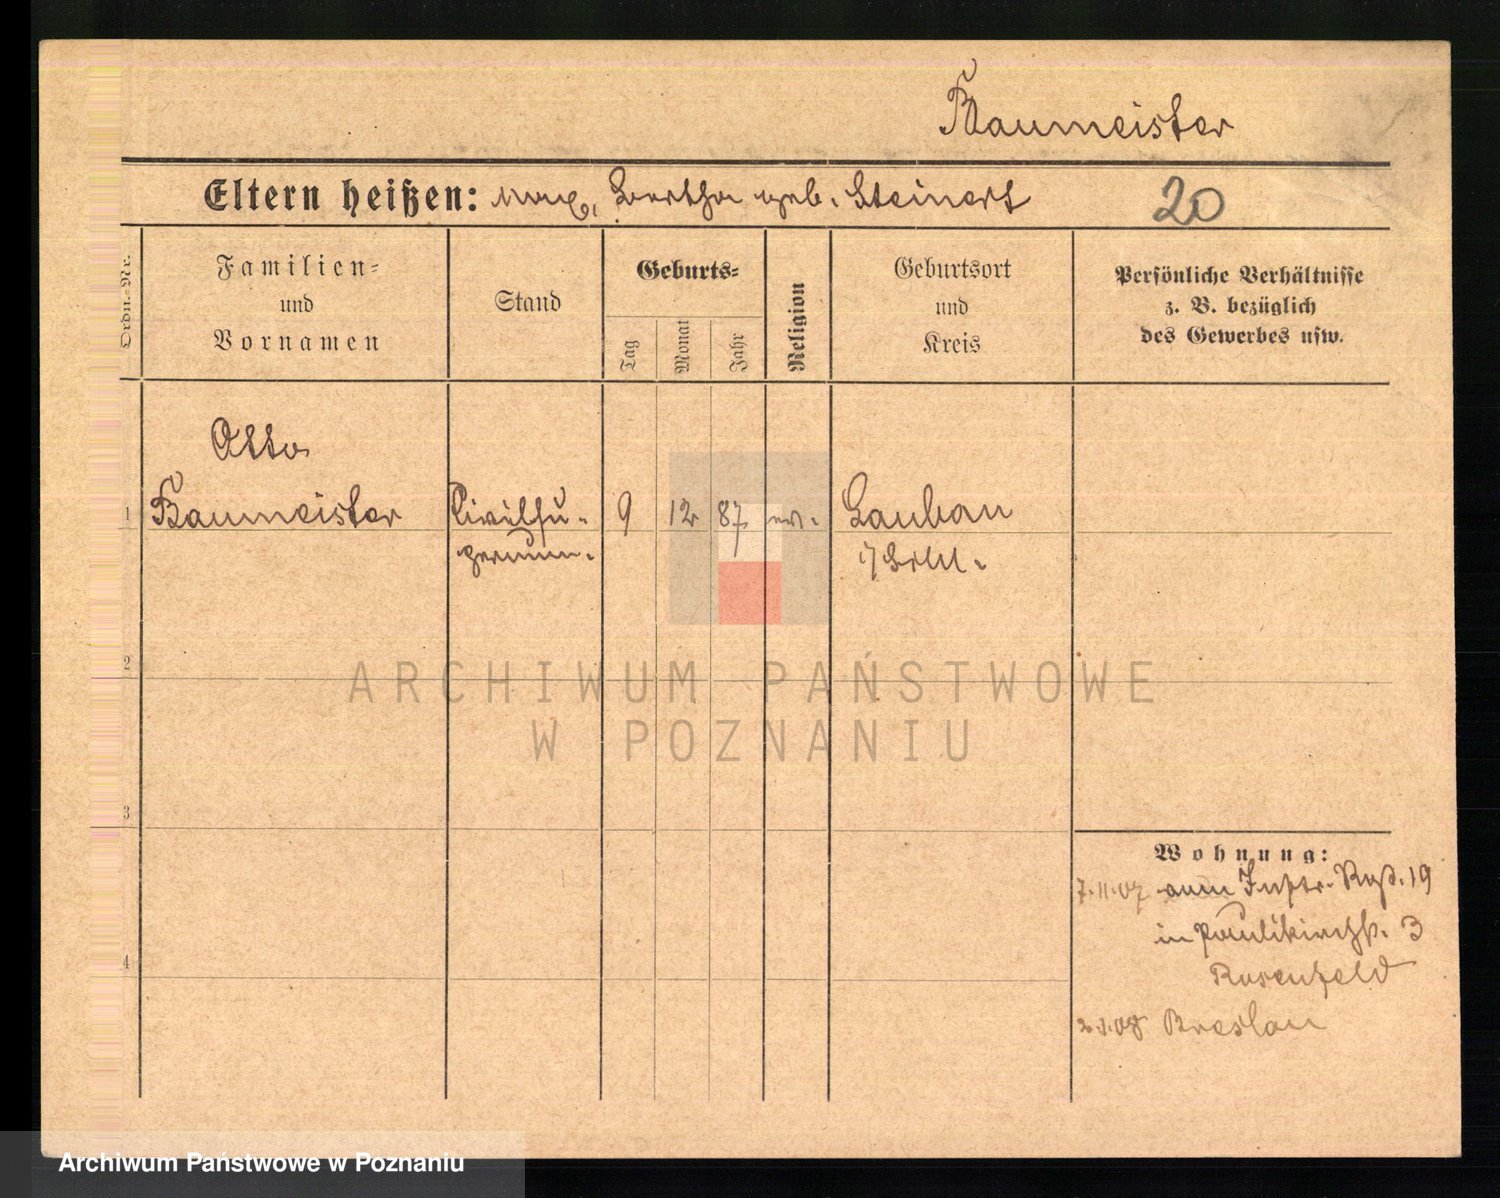 Baumeister
Eltern heißen: Max, Bertha geb. Steinert
20
Ordn.-Nr.
Familien-
und
Vornamen
Stand
Geburts-
Tag
Monat
Jahr
Religion
Geburtsort
und
Kreis
Persönliche Verhältnisse
z. B. bezüglich
des Gewerbes usw.
Otto
1 Baumeister
9 12 87 ev. Lauban
2
3
4
Wohnung:
7.11.07 vom Inftr. Rgt. 19
in Paulikirchst. 3
Rosenfeld
2.1.08 Breslau
ARCHIWUM PAŃSTWOWE
W POZNANIU
Archiwum Państwowe w Poznaniu